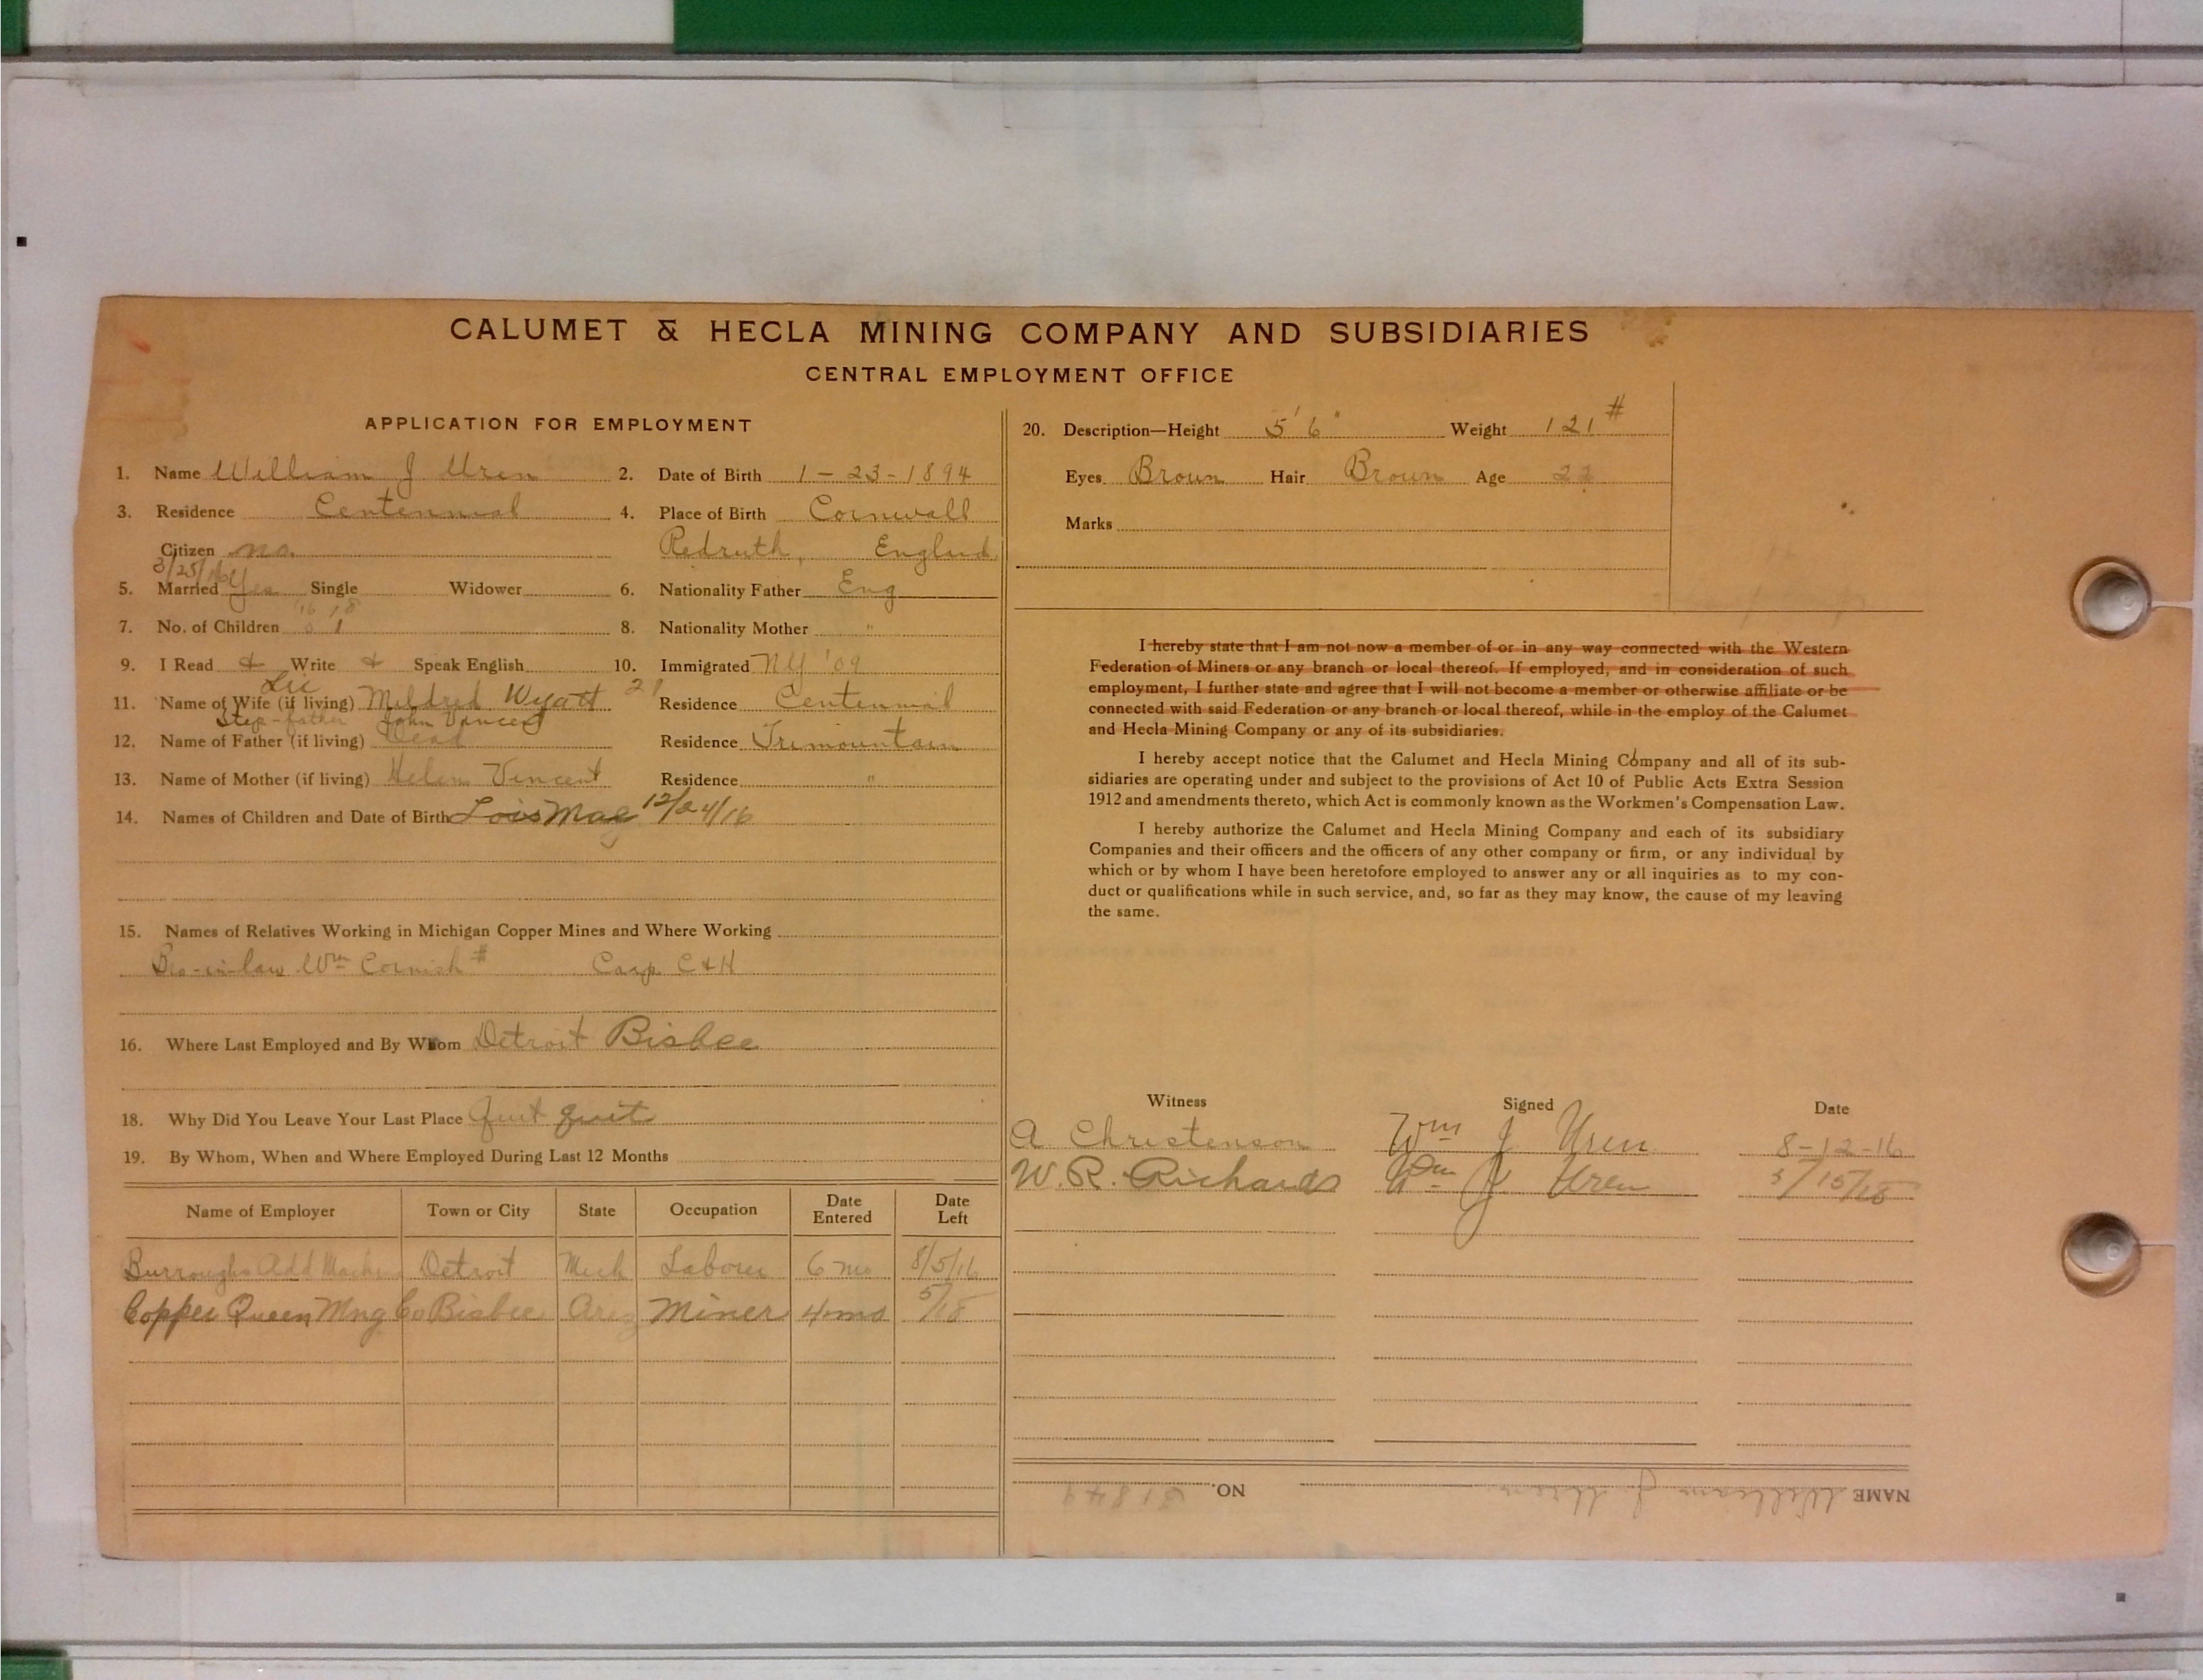 CALUMET & HECLA MINING COMPANY AND SUBSIDIARIES
CENTRAL EMPLOYMENT OFFICE
APPLICATION FOR EMPLOYMENT
1. Name William J Uren 2. Date of Birth 1-23-1894
3. Residence Centennial 4. Place of Birth Cornwall
Citizen no. Redruth, England
3/25/16
5. Married Yes Single Widower 6. Nationality Father Eng
'16 18
7. No. of Children 0 1 8. Nationality Mother "
9. I Read & Write & Speak English 10. Immigrated NY '09
11. Name of Wife (if living) Mildred Wyatt 21 Residence Centennial
Step-father John Vincent
12. Name of Father (if living) Dead Residence Trimountain
13. Name of Mother (if living) Helen Vincent Residence "
14. Names of Children and Date of Birth Lois Mae 12/24/16
15. Names of Relatives Working in Michigan Copper Mines and Where Working
Bro-in-law Wm Cornish # Carp C & H
16. Where Last Employed and By Whom Detroit Bisbee
18. Why Did You Leave Your Last Place Quit quit
19. By Whom, When and Where Employed During Last 12 Months
Name of Employer Town or City State Occupation Date Entered Date Left
Burroughs Add Machine Detroit Mich Laborer 6 mo 8/5/16
Copper Queen Mng Co Bisbee Ariz Miner 4 mo 5/18
20. Description—Height 5' 6" Weight 121 #
Eyes Brown Hair Brown Age 22
Marks
I hereby state that I am not now a member of or in any way connected with the Western
Federation of Miners or any branch or local thereof. If employed, and in consideration of such
employment, I further state and agree that I will not become a member or otherwise affiliate or be
connected with said Federation or any branch or local thereof, while in the employ of the Calumet
and Hecla Mining Company or any of its subsidiaries.
I hereby accept notice that the Calumet and Hecla Mining Company and all of its sub-
sidiaries are operating under and subject to the provisions of Act 10 of Public Acts Extra Session
1912 and amendments thereto, which Act is commonly known as the Workmen's Compensation Law.
I hereby authorize the Calumet and Hecla Mining Company and each of its subsidiary
Companies and their officers and the officers of any other company or firm, or any individual by
which or by whom I have been heretofore employed to answer any or all inquiries as to my con-
duct or qualifications while in such service, and, so far as they may know, the cause of my leaving
the same.
Witness Signed Date
A Christenson Wm J Uren 8-12-16
W. R. Richards Wm J. Uren 5/15/18
NAME William J. Uren NO. 31849